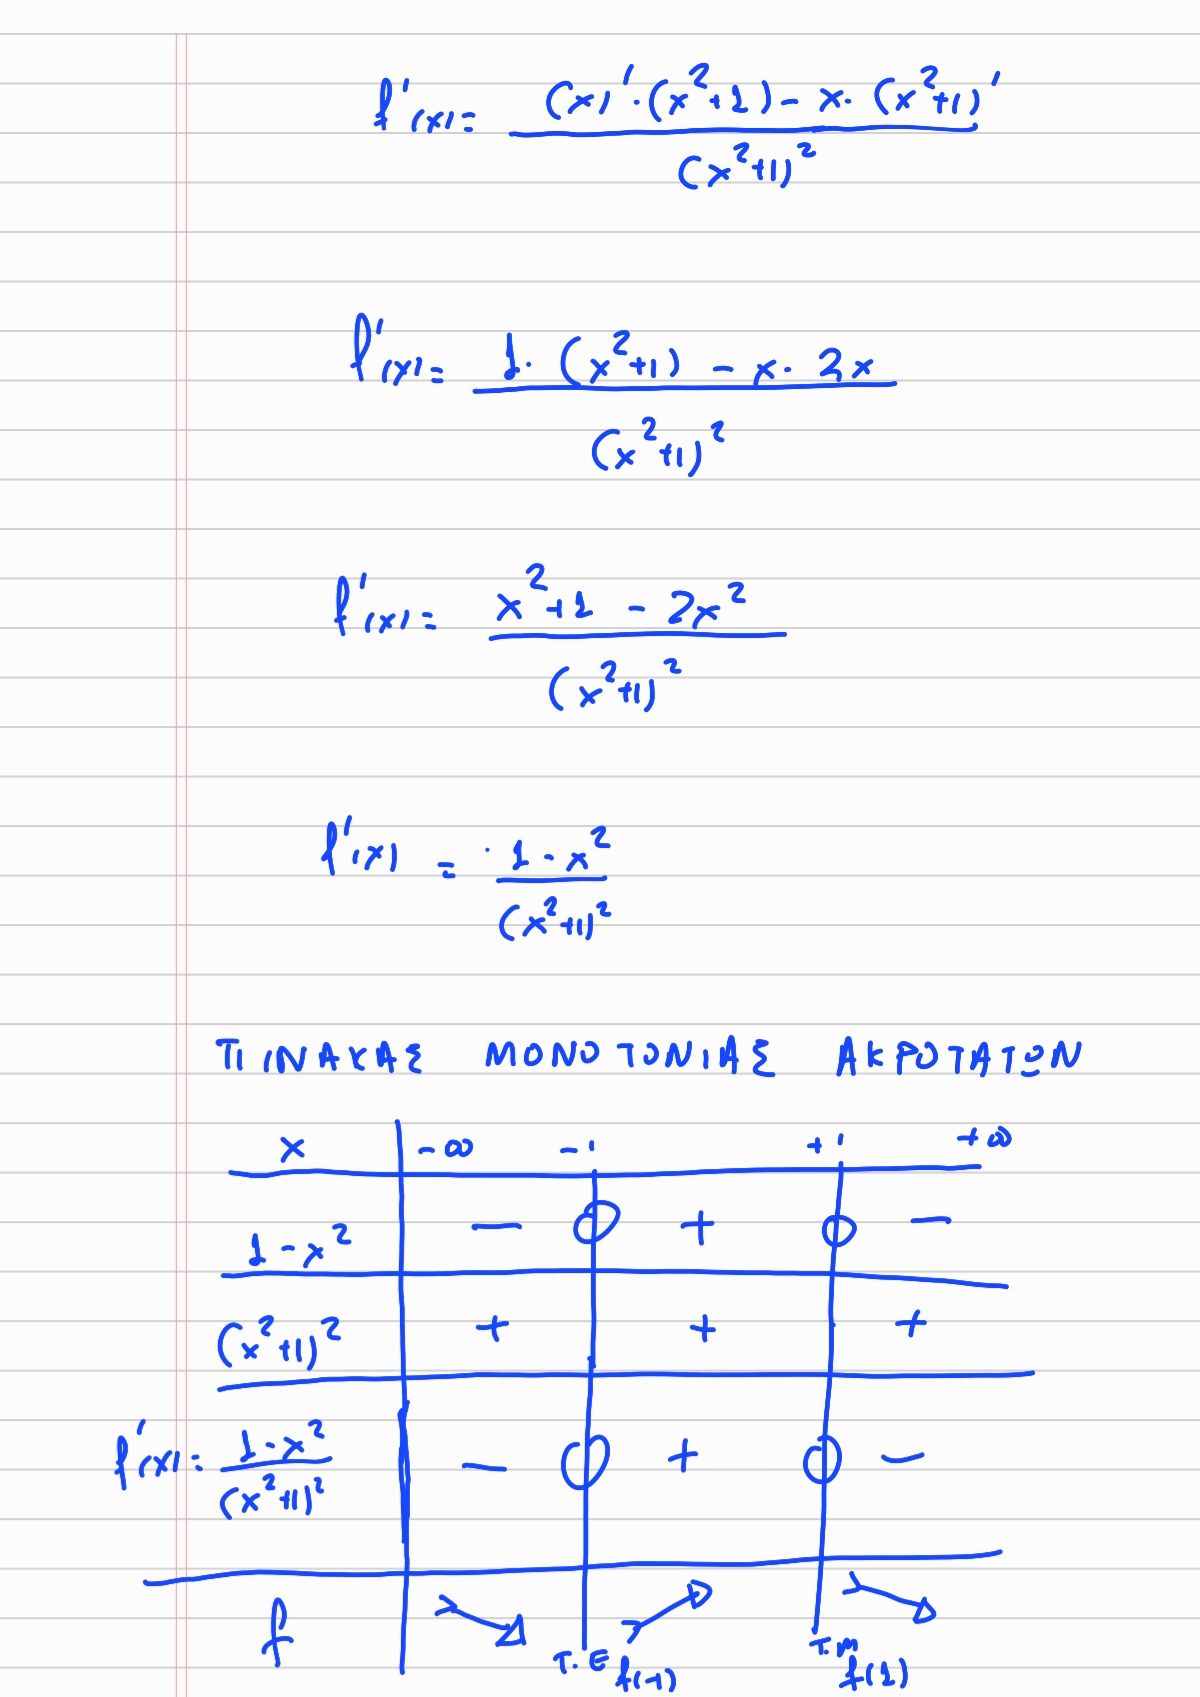 f'(x) = (x)'·(x²+1) - x·(x²+1)' / (x²+1)²
f'(x) = 1·(x²+1) - x·2x / (x²+1)²
f'(x) = x²+1 - 2x² / (x²+1)²
f'(x) = 1-x² / (x²+1)²
ΠΙΝΑΚΑΣ ΜΟΝΟΤΟΝΙΑΣ ΑΚΡΟΤΑΤΩΝ
x -∞ -1 +1 +∞
1-x² - 0 + 0 -
(x²+1)² + + +
f'(x) = 1-x² / (x²+1)² - 0 + 0 -
f ↘ Τ.Ε f(-1) ↗ Τ.Μ f(1) ↘